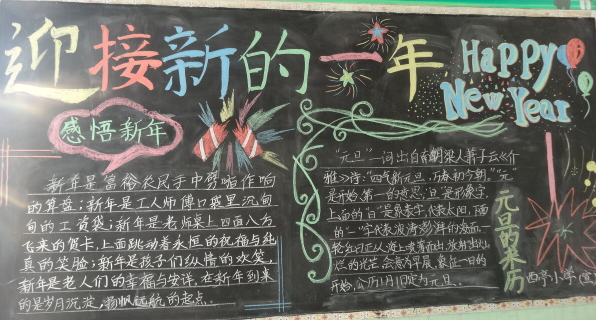 迎接新的一年
Happy
New Year
感悟新年
新年是富裕农民手中劈啪作响
的算盘；新年是工人师傅口袋里沉甸
甸的工资袋；新年是老师桌上四面八方
飞来的贺卡，上面跳动着永恒的祝福与纯
真的笑脸；新年是孩子们纵情的欢笑，
新年是老人们的幸福与安详。在新年到来
的是岁月沉淀，扬帆远航的起点。
"元旦"一词出自南朝梁人萧子云《介
雅》诗："四气新元旦，万寿初今朝。""元"
是开始、第一的意思，"旦"是象形字，
上面的"日"是象太阳，代表太阳，下面
的"一"字代表波涛澎湃的海面
一轮红日正从海上喷薄而出，放射出灿
烂的光芒 象征一日的
开始，公历1月1日定为元旦。
元旦的来历
西亭小学(宣)